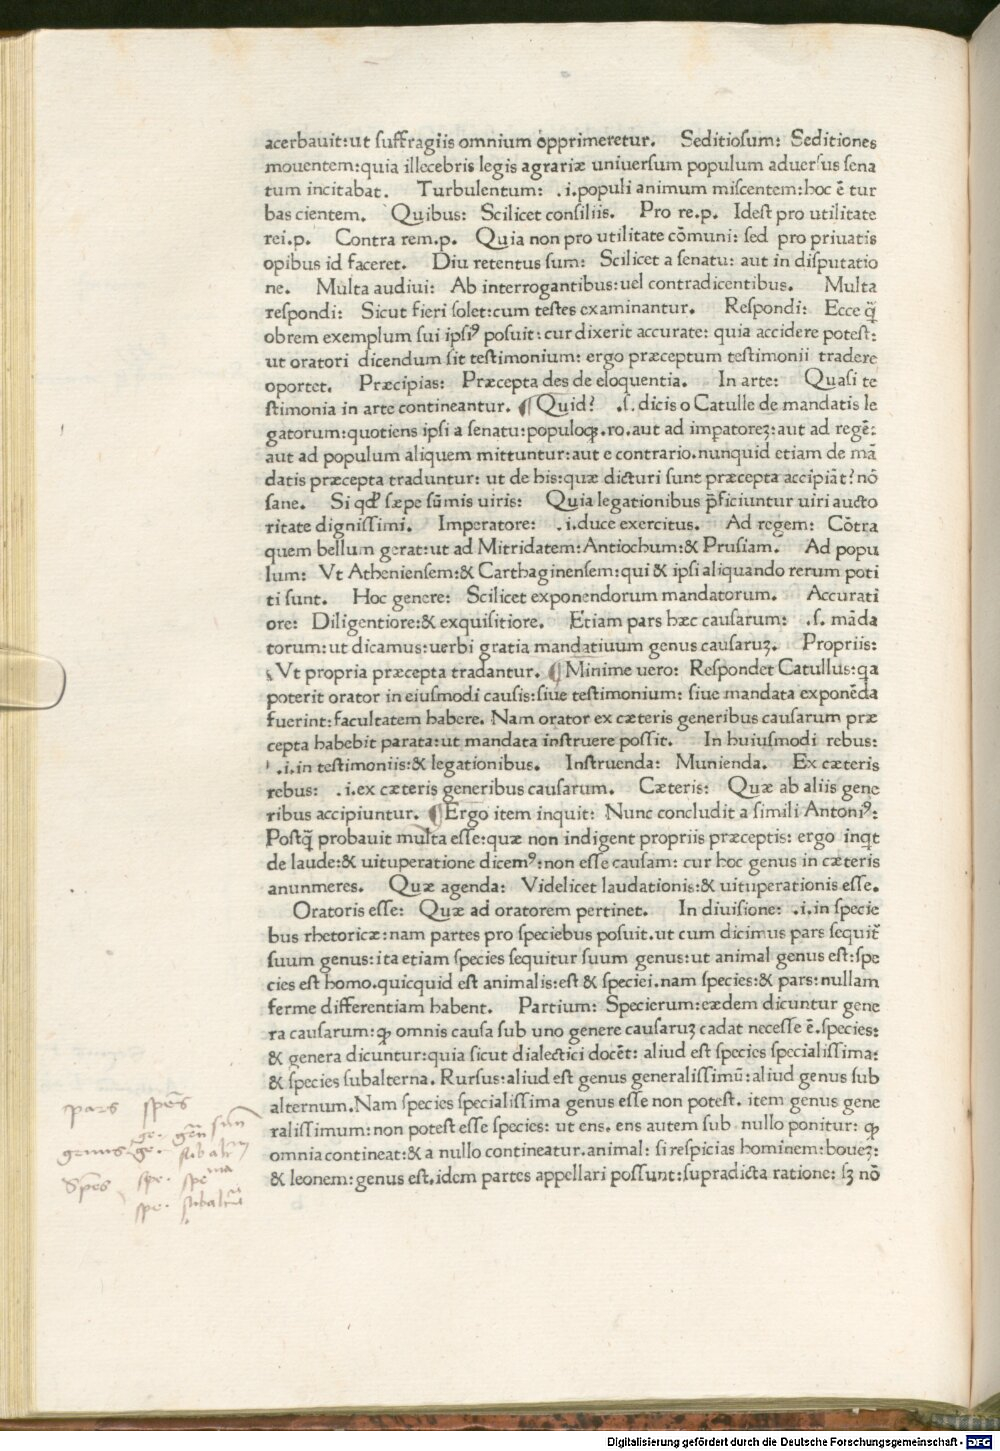 acerbauit:ut ſuffragiis omnium opprimeretur. Seditioſum: Seditiones
mouentem:quia illecebris legis agrariæ uniuerſum populum aduerſus ſena
tum incitabat. Turbulentum: .i.populi animum miſcentem:hoc ē tur
bas cientem. Quibus: Scilicet conſiliis. Pro re.p. Ideſt pro utilitate
rei.p. Contra rem.p. Quia non pro utilitate cōmuni: ſed pro priuatis
opibus id faceret. Diu retentus ſum: Scilicet a ſenatu: aut in diſputatio
ne. Multa audiui: Ab interrogantibus:uel contradicentibus. Multa
reſpondi: Sicut fieri ſolet:cum teſtes examinantur. Reſpondi: Ecce q̄
obrem exemplum ſui ipſiꝰ poſuit: cur dixerit accurate: quia accidere poteſt:
ut oratori dicendum ſit teſtimonium: ergo præceptum teſtimonii tradere
oportet. Præcipias: Præcepta des de eloquentia. In arte: Quaſi te
ſtimonia in arte contineantur. ¶Quid? .ſ. dicis o Catulle de mandatis le
gatorum:quotiens ipſi a ſenatu:populoqꝫ.ro.aut ad impatoreꝫ:aut ad regē:
aut ad populum aliquem mittuntur:aut e contrario.nunquid etiam de mā
datis præcepta traduntur: ut de his:quæ dicturi ſunt præcepta accipiāt? nō
ſane. Si qđ ſæpe ſūmis uiris: Quia legationibus p̄ficiuntur uiri aucto
ritate digniſſimi. Imperatore: .i.duce exercitus. Ad regem: Cōtra
quem bellum gerat:ut ad Mitridatem:Antiochum:& Pruſiam. Ad popu
lum: Vt Athenienſem:& Carthaginenſem:qui & ipſi aliquando rerum poti
ti ſunt. Hoc genere: Scilicet exponendorum mandatorum. Accurati
ore: Diligentiore:& exquiſitiore. Etiam pars hæc cauſarum: .ſ. māda
torum:ut dicamus:uerbi gratia mandatiuum genus cauſaruꝫ. Propriis:
Vt propria præcepta tradantur. ¶Minime uero: Reſpondet Catullus:qa
poterit orator in eiuſmodi cauſis:ſiue teſtimonium: ſiue mandata exponēda
fuerint:facultatem habere. Nam orator ex cæteris generibus cauſarum præ
cepta habebit parata:ut mandata inſtruere poſſit. In huiuſmodi rebus:
.i.in teſtimoniis:& legationibus. Inſtruenda: Munienda. Ex cæteris
rebus: .i.ex cæteris generibus cauſarum. Cæteris: Quæ ab aliis gene
ribus accipiuntur. ¶Ergo item inquit: Nunc concludit a ſimili Antoniꝰ:
Poſtq̄ probauit multa eſſe:quæ non indigent propriis præceptis: ergo inqt
de laude:& uituperatione dicemꝰ:non eſſe cauſam: cur hoc genus in cæteris
anunmeres. Quæ agenda: Videlicet laudationis:& uituperationis eſſe.
Oratoris eſſe: Quæ ad oratorem pertinet. In diuiſione: .i.in ſpecie
bus rhetoricæ:nam partes pro ſpeciebus poſuit.ut cum dicimus pars ſequit̄
ſuum genus:ita etiam ſpecies ſequitur ſuum genus:ut animal genus eſt:ſpe
cies eſt homo.quicquid eſt animalis:eſt & ſpeciei.nam ſpecies:& pars:nullam
ferme differentiam habent. Partium: Specierum:eædem dicuntur gene
ra cauſarum:qꝫ omnis cauſa ſub uno genere cauſaruꝫ cadat neceſſe ē.ſpecies:
& genera dicuntur:quia ſicut dialectici docēt: aliud eſt ſpecies ſpecialiſſima:
& ſpecies ſubalterna. Rurſus:aliud eſt genus generaliſſimū:aliud genus ſub
alternum.Nam ſpecies ſpecialiſſima genus eſſe non poteſt. item genus gene
raliſſimum:non poteſt eſſe ſpecies: ut ens. ens autem ſub nullo ponitur: qꝫ
omnia contineat:& a nullo contineatur.animal: ſi reſpicias hominem:boueꝫ:
& leonem:genus eſt.idem partes appellari poſſunt:ſupradicta ratione: ſꝫ nō
pars spēs
genus ge. ge.
Spēs spe. spe.
spe.
Digitalisierung gefördert durch die Deutsche Forschungsgemeinschaft - DFG